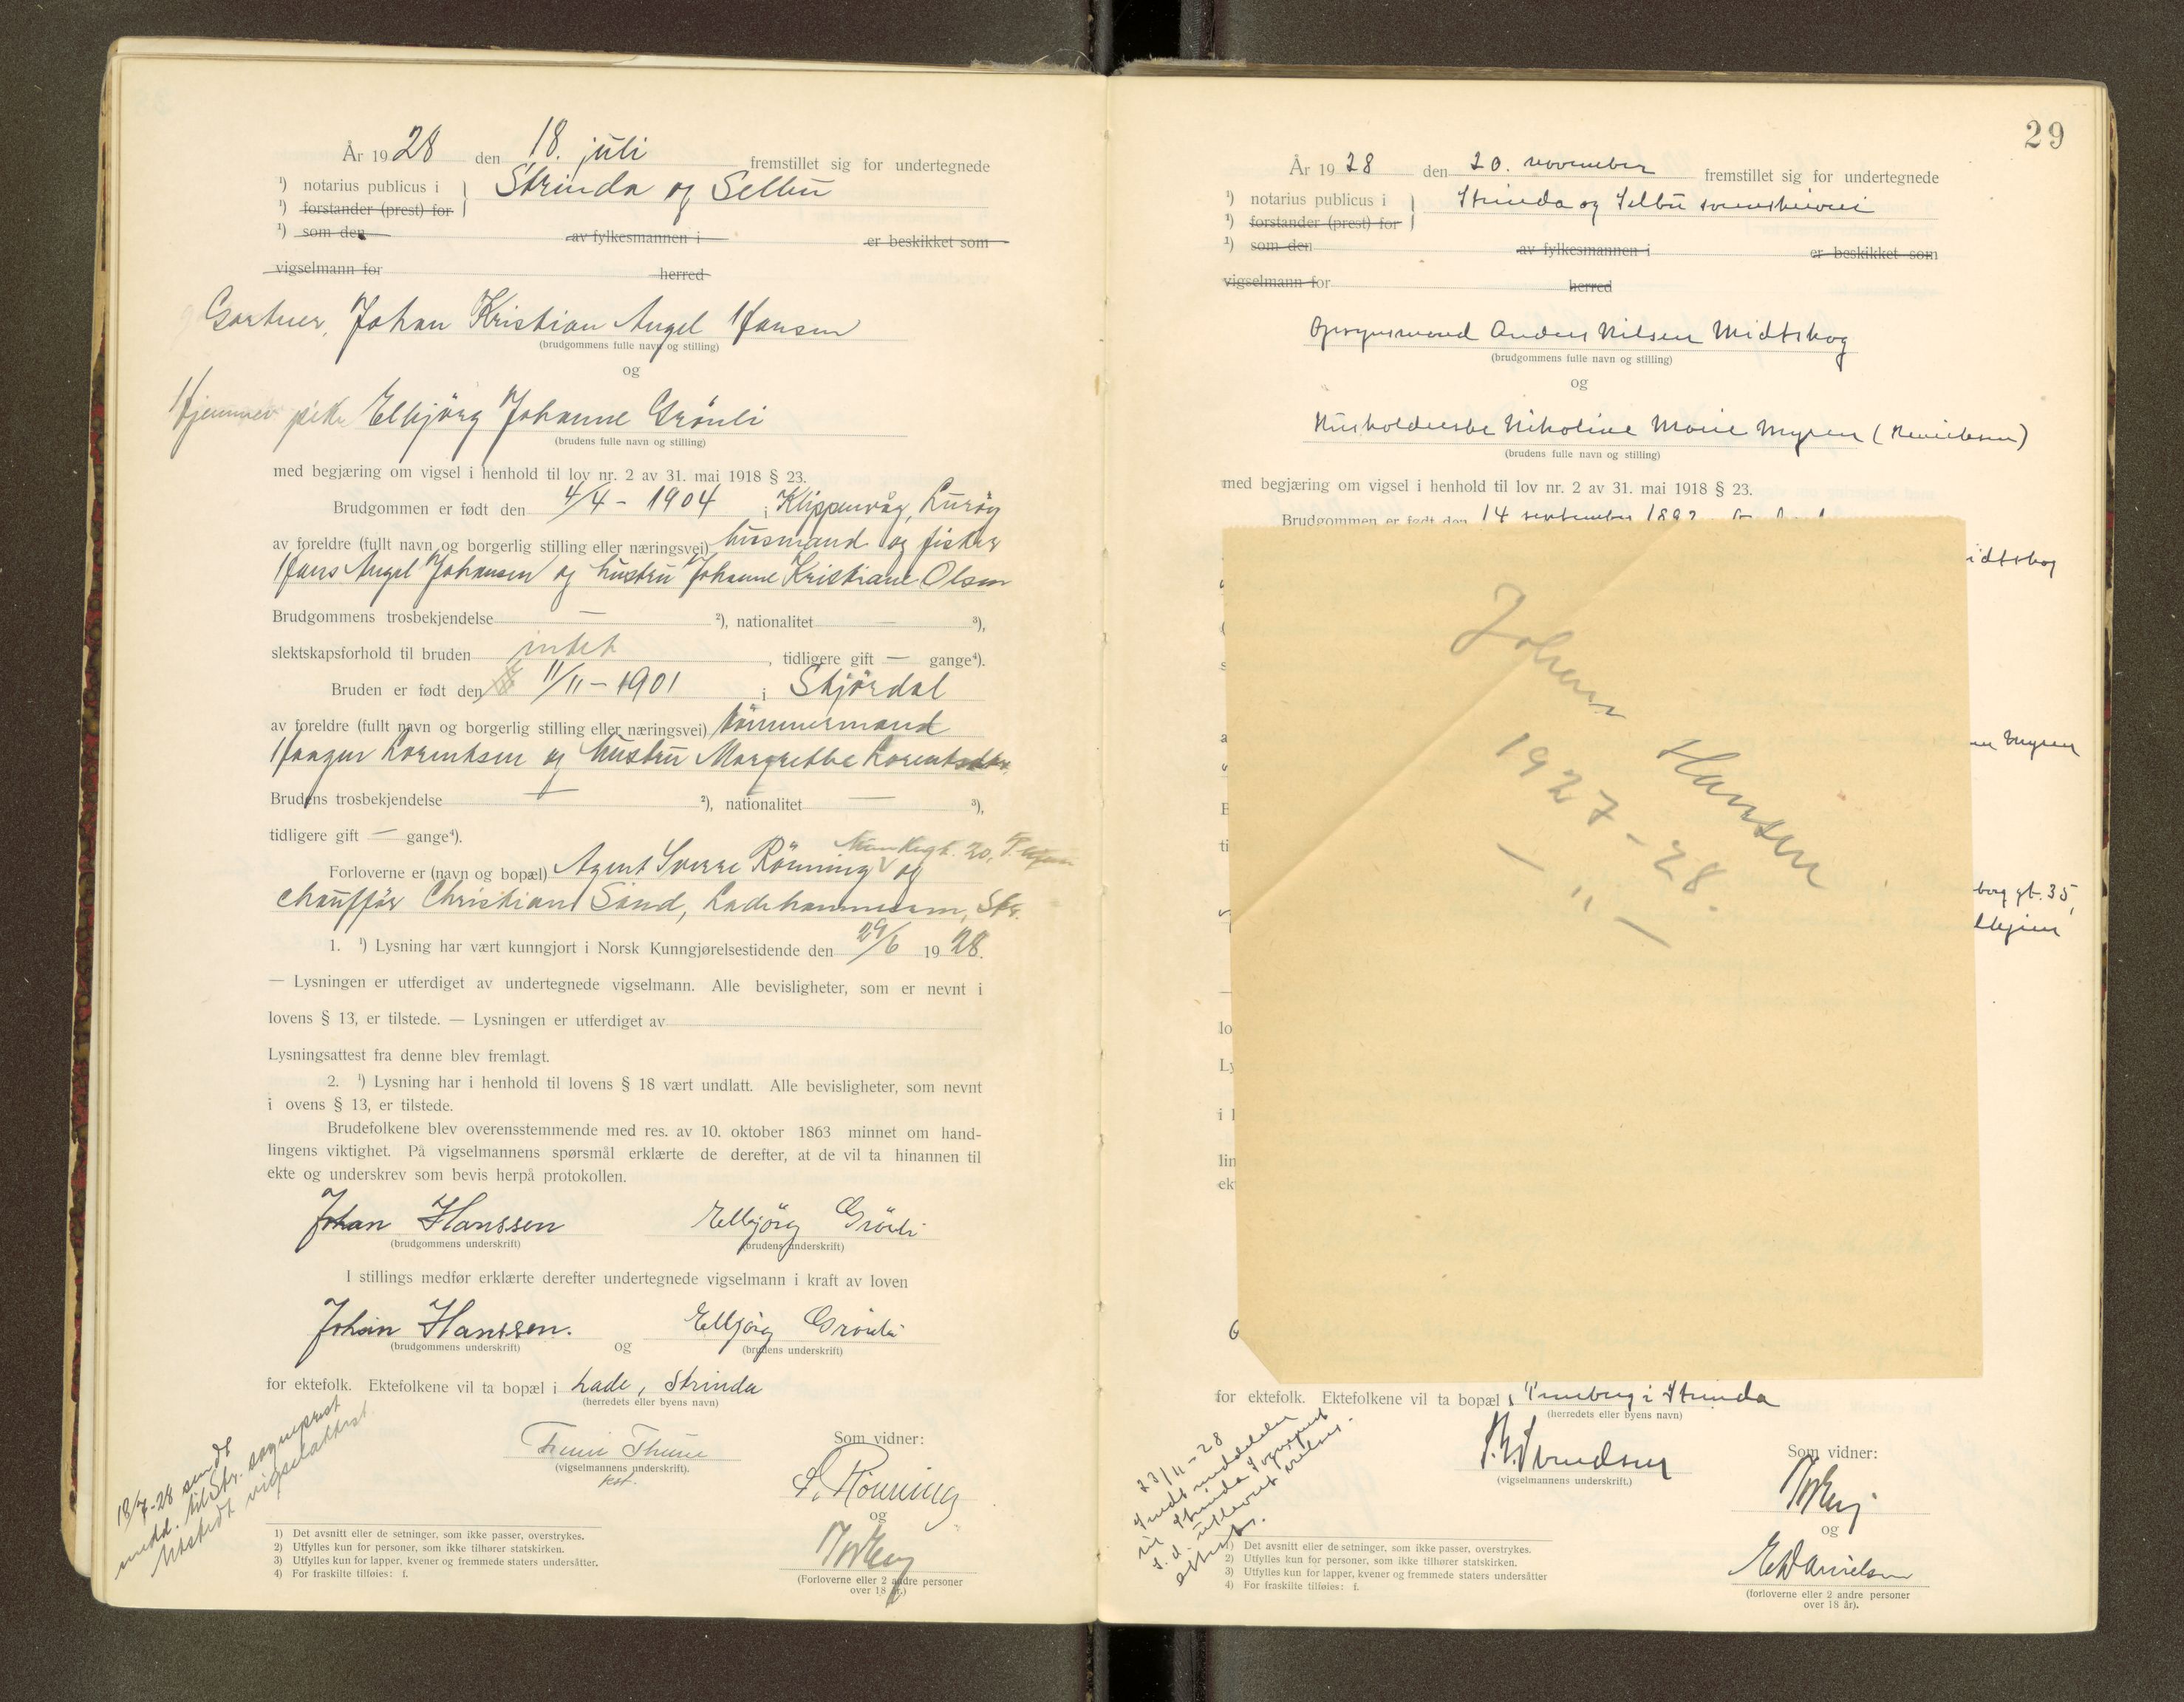 År 1928 den 18. juli fremstillet sig for undertegnede
¹) notarius publicus i } Strinda og Selbu
¹) forstander (prest) for
¹) som den av fylkesmannen i er beskikket som
vigselmann for herred
Gartner, Johan Kristian Angel Hansen
(brudgommens fulle navn og stilling)
og
Hjemmev pike Elbjörg Johanne Grönli
(brudens fulle navn og stilling)
med begjæring om vigsel i henhold til lov nr. 2 av 31. mai 1918 § 23.
Brudgommen er født den 4/4 - 1904 i Klippenvåg, Luröy
av foreldre (fullt navn og borgerlig stilling eller næringsvei) husmand og fisker
Hans Angel Johansen og hustru Johanne Kristiane Olsen
Brudgommens trosbekjendelse — ²), nationalitet — ³),
slektskapsforhold til bruden intet, tidligere gift — gange⁴).
Bruden er født den 11/11 - 1901 i Stjördal
av foreldre (fullt navn og borgerlig stilling eller næringsvei) tömmermand
Haagen Lorentsen og hustru Margrethe Lorentsdtr.
Brudens trosbekjendelse — ²), nationalitet — ³),
tidligere gift — gange⁴).
Munkegt. 20,
Forloverne er (navn og bopæl) Agent Sverre Rönning og
chaufför Christian Sand, Ladehammeren, Str.
1. ¹) Lysning har vært kunngjort i Norsk Kunngjørelsestidende den 29/6 1928.
— Lysningen er utferdiget av undertegnede vigselmann. Alle bevisligheter, som er nevnt i
lovens § 13, er tilstede. — Lysningen er utferdiget av
Lysningsattest fra denne blev fremlagt.
2. ¹) Lysning har i henhold til lovens § 18 vært undlatt. Alle bevisligheter, som nevnt
i ovens § 13, er tilstede.
Brudefolkene blev overensstemmende med res. av 10. oktober 1863 minnet om hand-
lingens viktighet. På vigselmannens spørsmål erklærte de derefter, at de vil ta hinannen til
ekte og underskrev som bevis herpå protokollen.
Johan Hanssen Elbjörg Grönli
(brudgommens underskrift) (brudens underskrift)
I stillings medfør erklærte derefter undertegnede vigselmann i kraft av loven
Johan Hanssen. og Elbjörg Grönli
(brudgommens underskrift) (brudens underskrift)
for ektefolk. Ektefolkene vil ta bopæl i Lade, Strinda
(herredets eller byens navn)
18/7-28 sendt
medd. til Str. sogneprest
Utstedt vigselattest.
Thune
(vigselmannens underskrift).
kst.
Som vidner:
S. Rönning
og
(Forloverne eller 2 andre personer
over 18 år.)
1) Det avsnitt eller de setninger, som ikke passer, overstrykes.
2) Utfylles kun for personer, som ikke tilhører statskirken.
3) Utfylles kun for lapper, kvener og fremmede staters undersåtter.
4) For fraskilte tilføies: f.
29
År 1928 den 20. november fremstillet sig for undertegnede
¹) notarius publicus i } Strinda og Selbu sorenskriveri
¹) forstander (prest) for
¹) som den av fylkesmannen i er beskikket som
vigselmann for herred
Opsynsmand Anders Nilsen Midtskog
(brudgommens fulle navn og stilling)
og
Husholderske Nikoline Marie Myren (Henriksen)
(brudens fulle navn og stilling)
med begjæring om vigsel i henhold til lov nr. 2 av 31. mai 1918 § 23.
Brudgommen er født den 14 september 1892
idtskog
Johan Hansen
1927-28.
— " —
Myren
borg gt. 35,
for ektefolk. Ektefolkene vil ta bopæl i Tuneberg i Strinda
(herredets eller byens navn)
23/11-28
Sendt meddelelse
til Strinda Sogneprest
s. d. utlevert vielses-
attest.
(vigselmannens underskrift.)
Som vidner:
og
E. Danielsen
(forloverne eller 2 andre personer
over 18 år).
1) Det avsnitt eller de setninger, som ikke passer, overstrykes.
2) Utfylles kun for personer, som ikke tilhører statskirken.
3) Utfylles kun for lapper, kvener og fremmede staters undersåtter
4) For fraskilte tilføies: f.